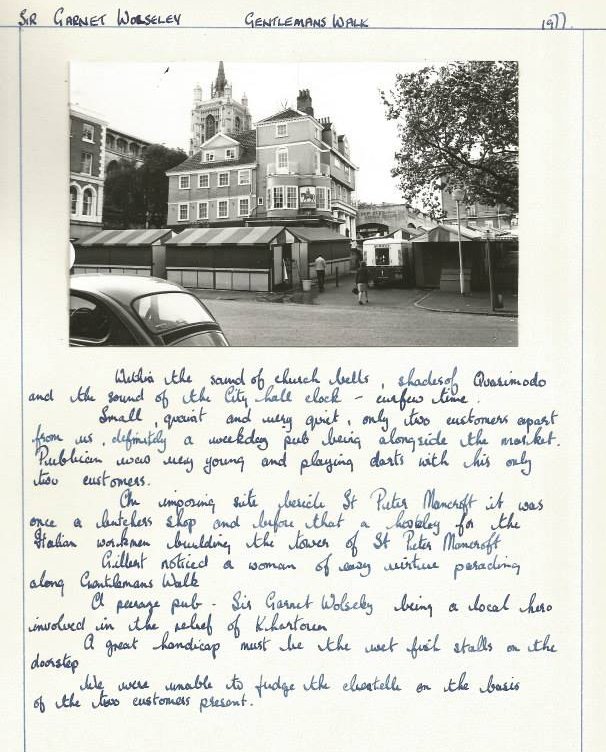 SIR GARNET WOLSELEY GENTLEMANS WALK 1977.
Within the sound of church bells, shades of Quasimodo
and the sound of the City hall clock - curfew time.
Small, quaint and very quiet, only two customers apart
from us, definitely a weekday pub being alongside the market.
Publican was very young and playing darts with his only
two customers.
An imposing site beside St Peter Mancroft it was
once a butchers shop and before that a for the
Italian workmen building the tower of St Peter Mancroft
Gilbert noticed a woman of easy virtue parading
along Gentlemans Walk
A peerage pub - Sir Garnet Wolseley being a local hero
involved in the relief of Khartoum
A great handicap must be the wet fish stalls on the
doorstep
We were unable to judge the clientelle on the basis
of the two customers present.